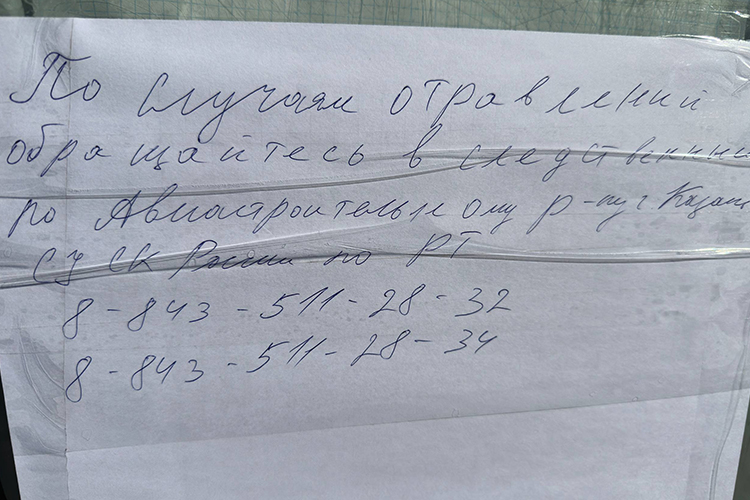 По случаям отравлений
обращайтесь в следственный
по Авиастроительному р-ну г Казани
СУ СК России по РТ
8-843-511-28-32
8-843-511-28-34